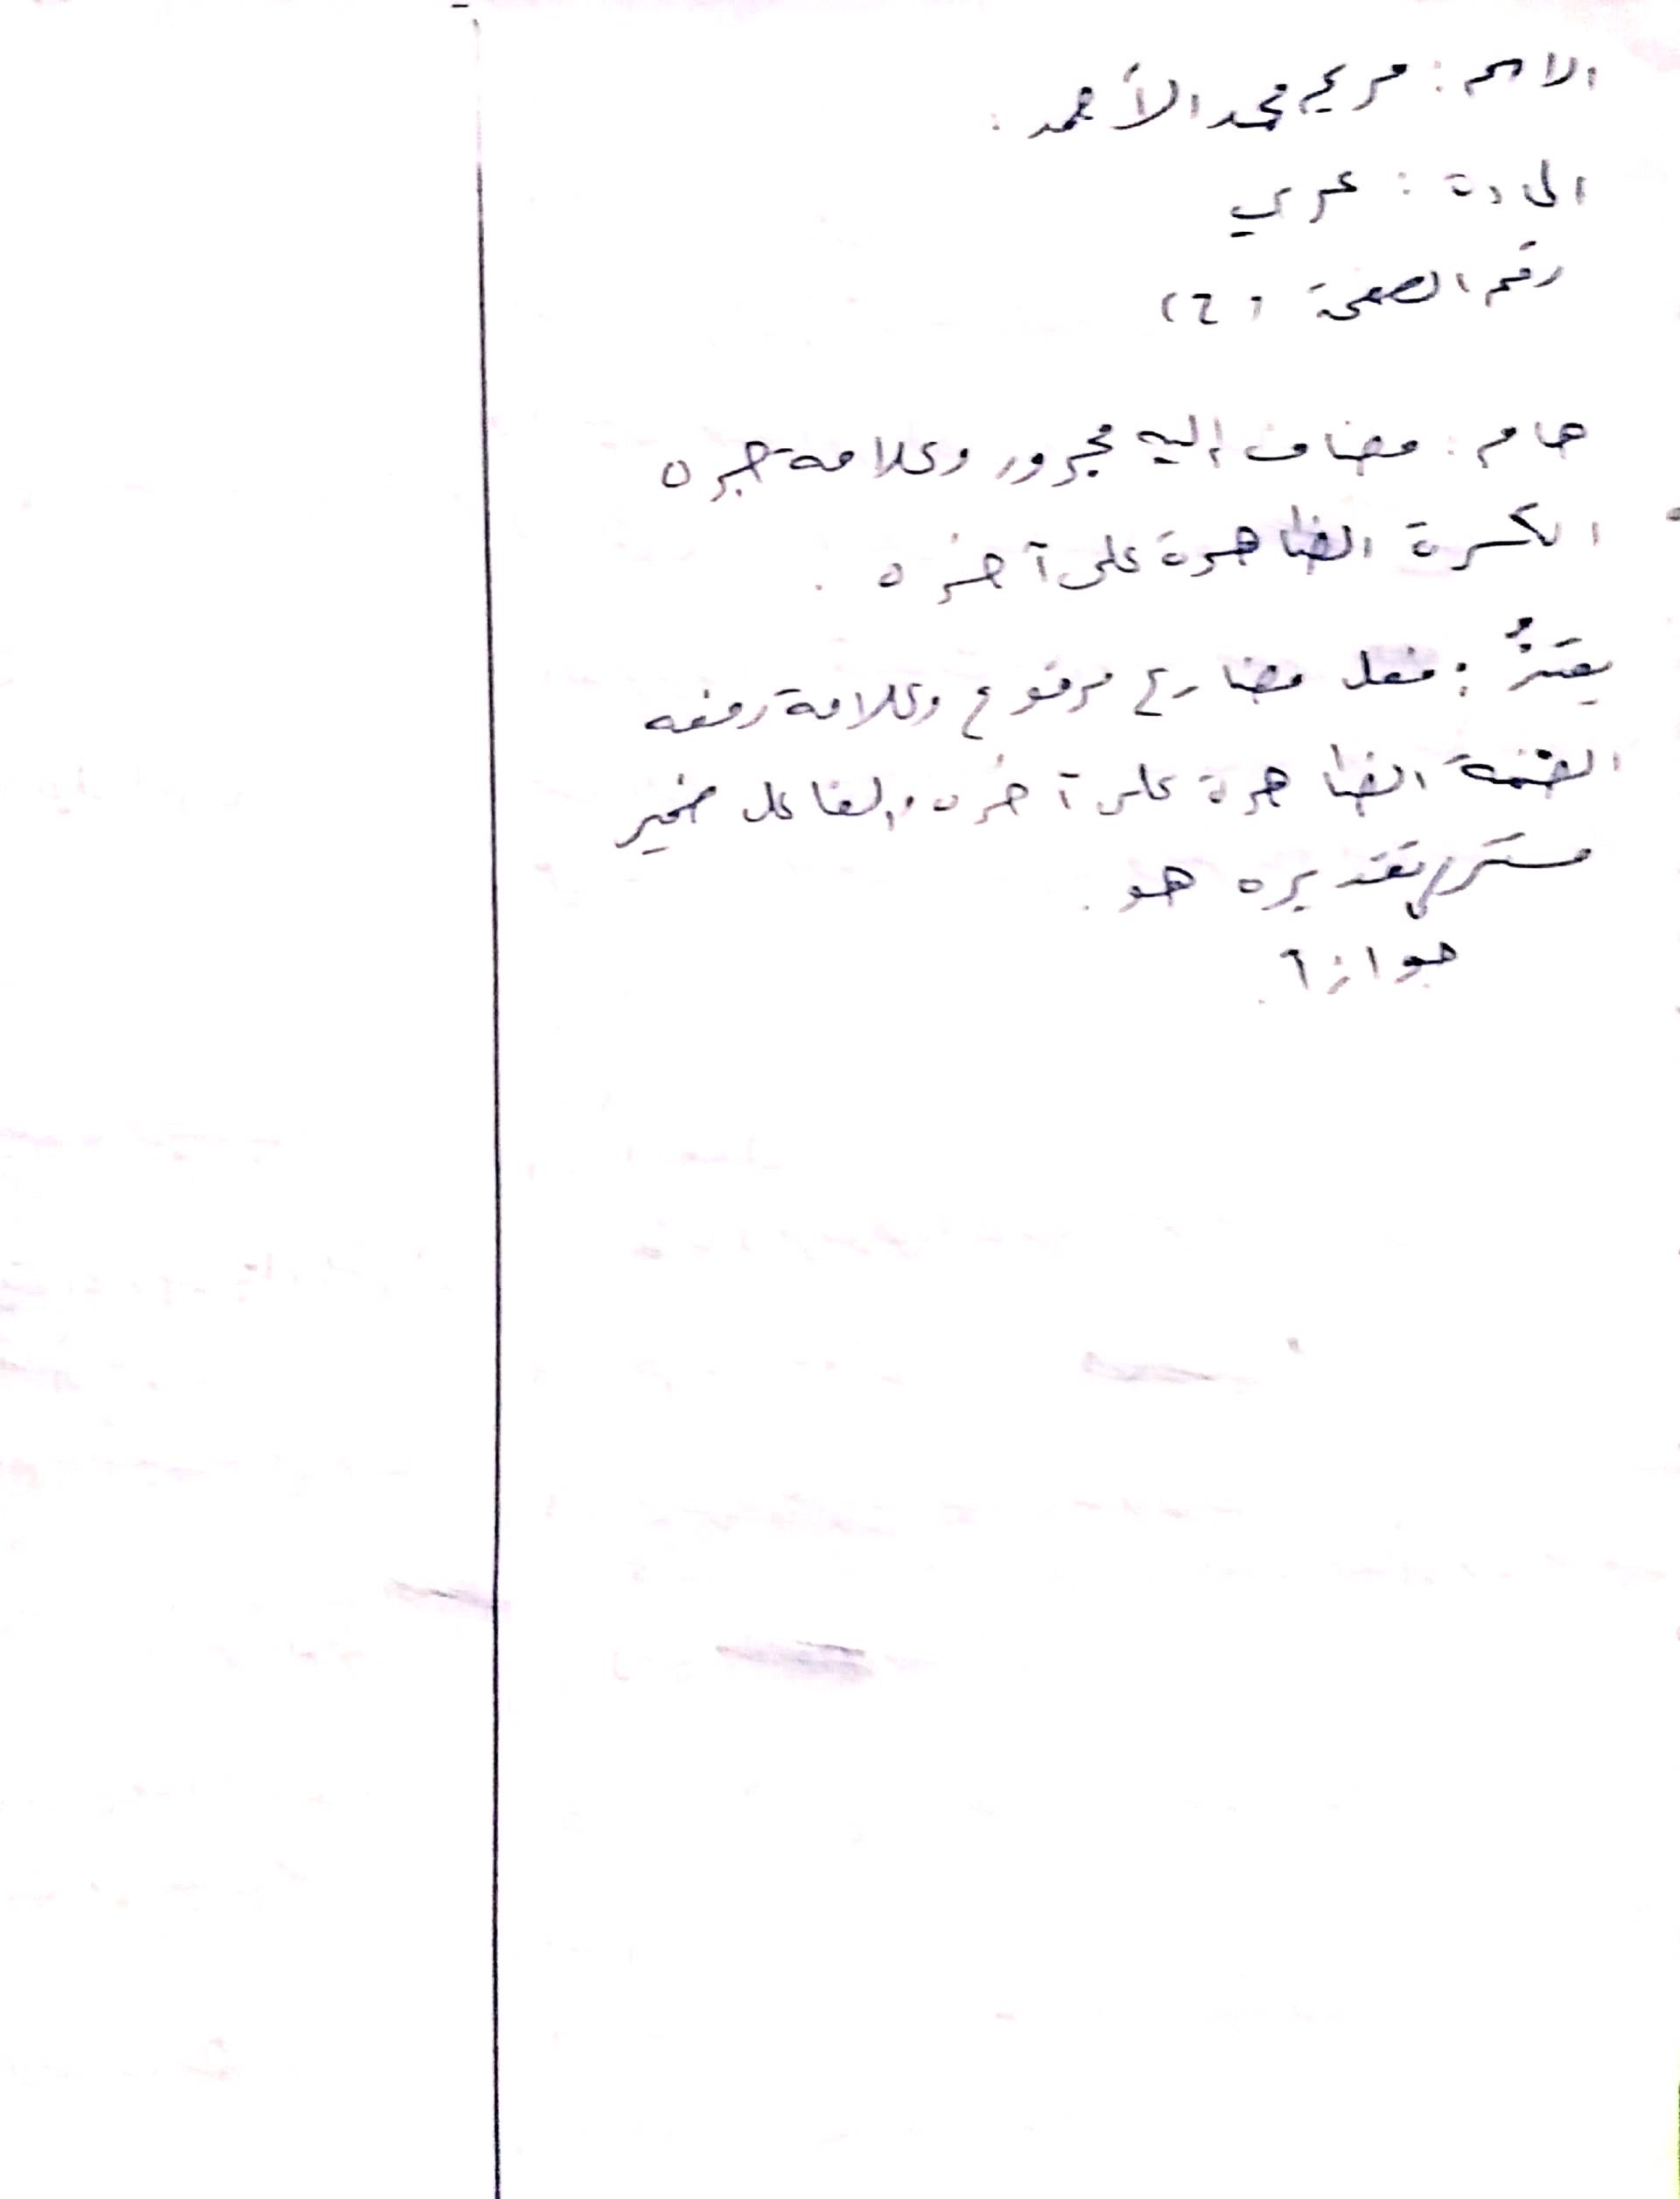 الاسم : مريم محمد الأحمد .
المادة : عربي
رقم الصفحة (٦)
هام : مضاف إليه مجرور وعلامة جره
الكسرة الضاهرة على آخره .
يعتزُّ : فعل مضارع مرفوع وعلامة رفعه
الضمة الضاهرة على آخره والفاعل ضمير
مستتر تقديره هو .
جوازاً .